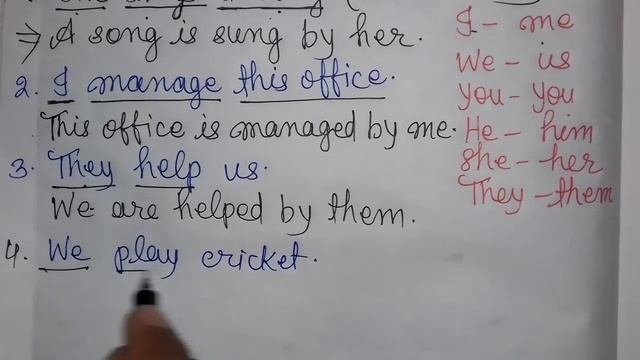 ⇒ A song is sung by her.
2. I manage this office.
This office is managed by me.
3. They help us.
We are helped by them.
4. We play cricket.
I - me
We - us
you - you
He - him
she - her
They - them